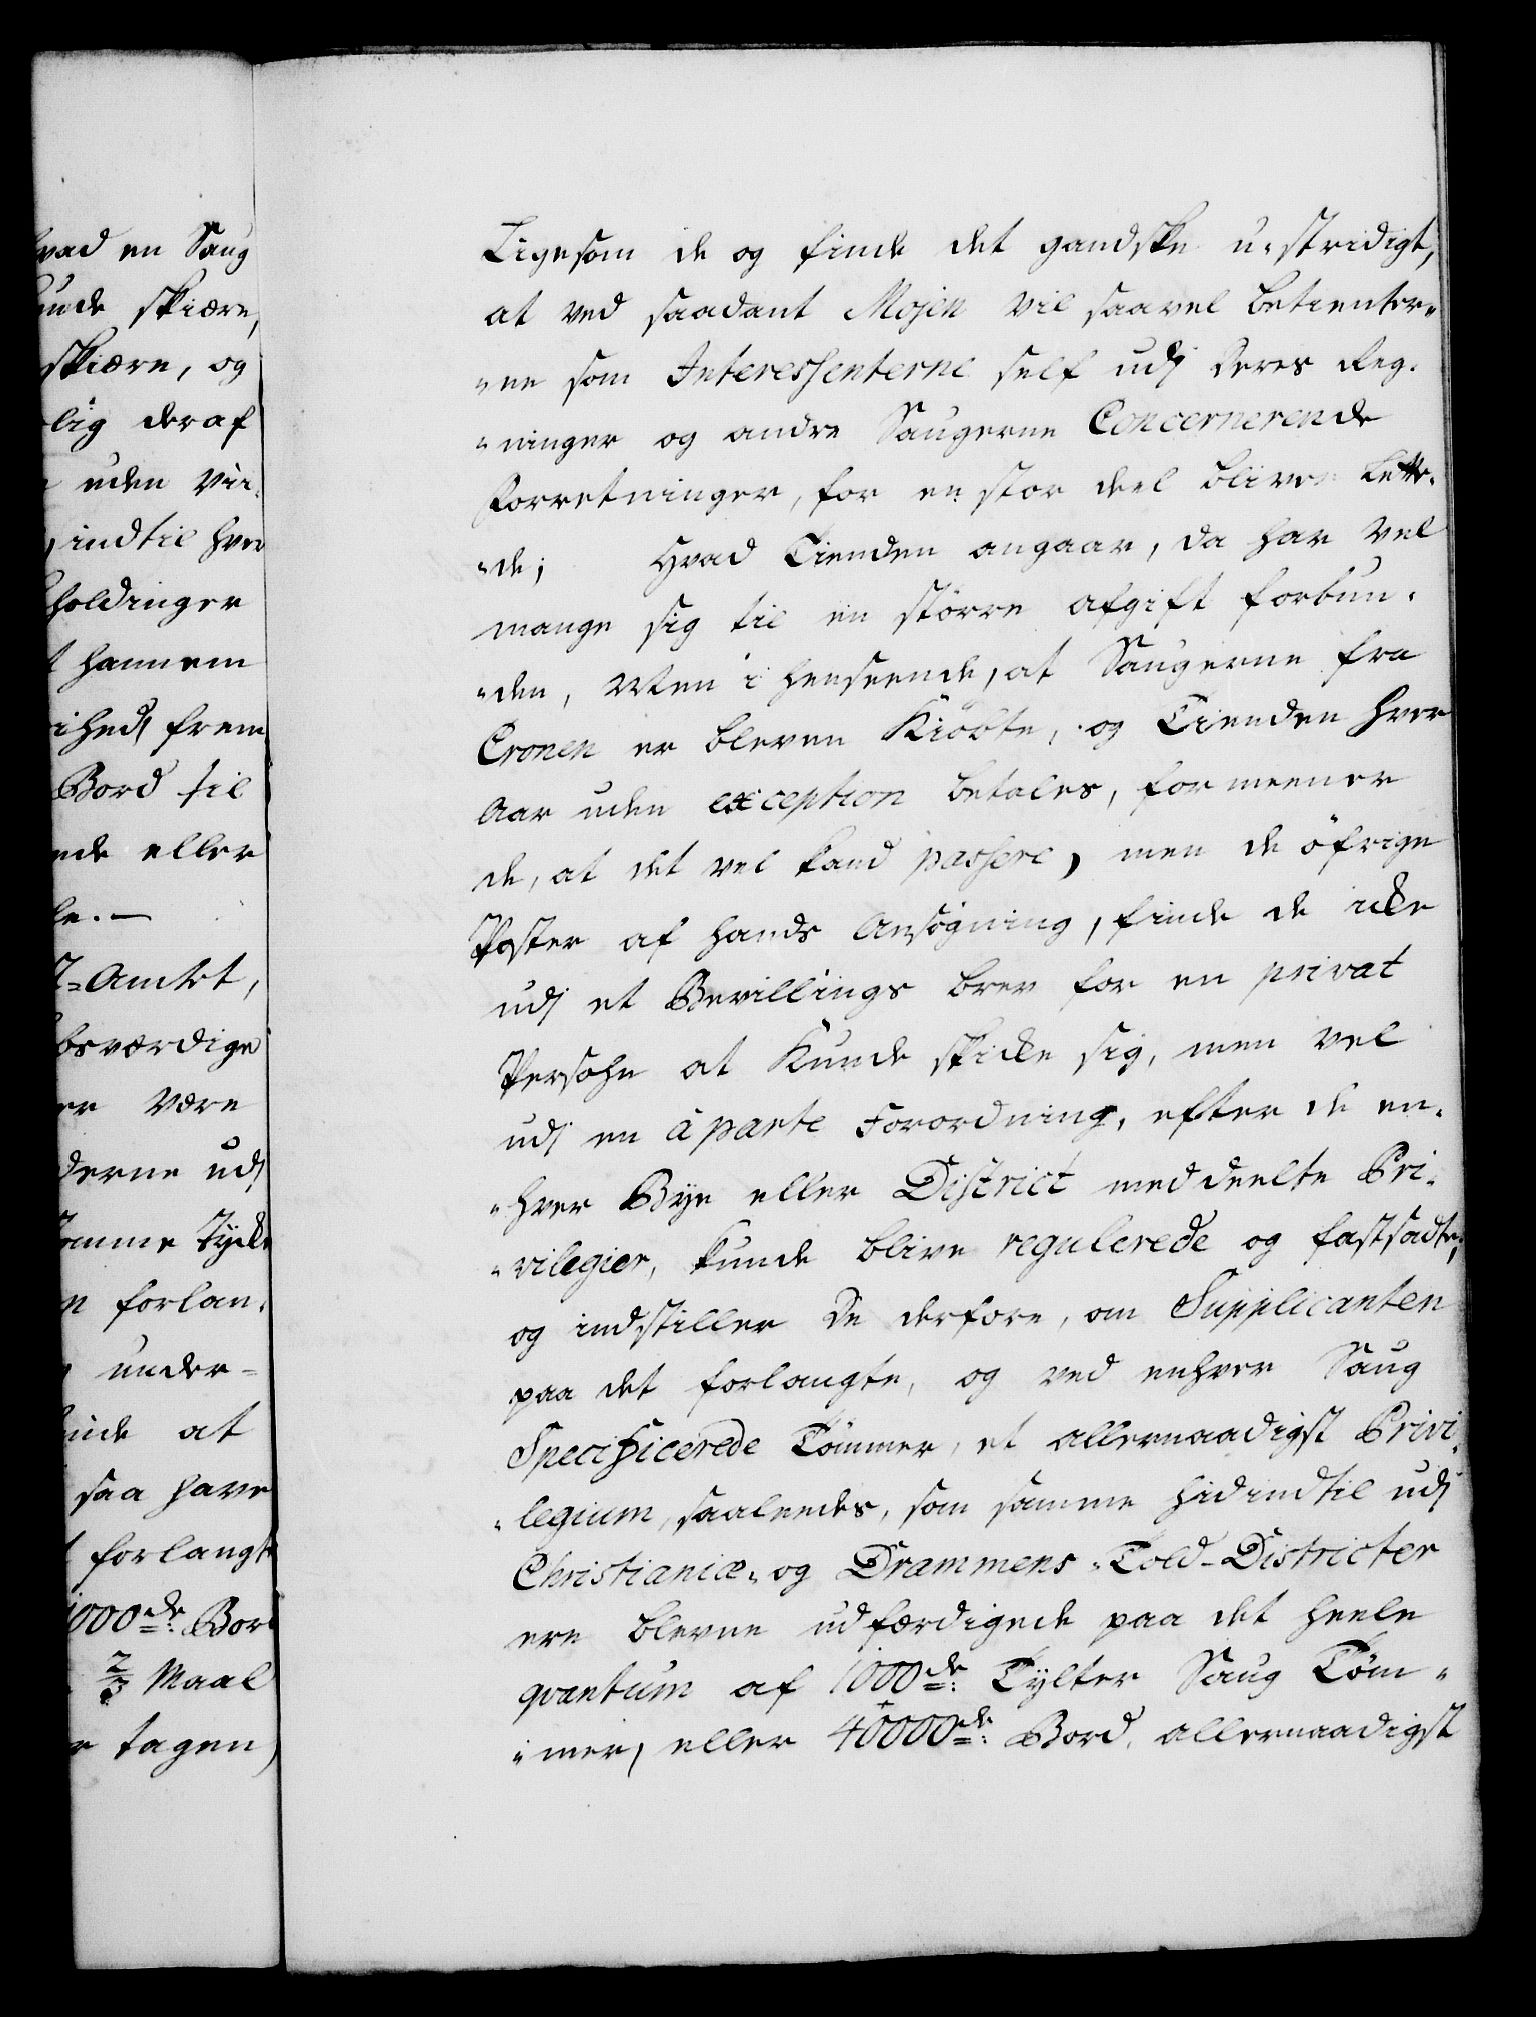 vad en Saug
unde skiære,
skiære, og
lig deraf
uden vii-
indtil hver
holdinger
hannem
ihed, frem
Bord til
nde eller
le. —
T-Amtet,
bsværdige
er være
derne udj
omme Tycke
n forlan-
under-
inde at
saa have
forlangte
1000de: Bord
2/3 Maal
r tagen,
Ligesom de og finde det gandske u-stridigt,
at ved saadant Mojen vil saavel betienter-
-ne som Interessenterne self udj deres Reg-
-ninger og andre Saugerne Concernerende
Forretninger, for en stor deel blive lette-
-de; Hvad Tienden angaar, da har vel
mange sig til en större afgift forbun-
-den, Men i henseende, at Saugerne fra
Cronen er bleven Kiöbte, og Tienden hver
Aar uden exception betales, formeener
de, at det vel kand passere, men de öfrige
Poster af hands Ansögning, finde de icke
udj et Bevillings brev for en privat
Persohn at Kunde skicke sig, men vel
udj en à parte Forordning, efter de en-
-hver Bye eller District meddeelte Pri-
-vilegier, kunde blive regulerede og fastsadte;
og indstiller De derfore, om Supplicanten
paa det forlangte, og ved enhver Saug
Specificerede Tömmer, et allernaadigst Privi-
-legium, saaleedes, som samme hidindtil udj
Christianiæ- og Drammens-Told-Districter
ere blevne udfærdigede paa det heele
qvantum af 1000de: Tylter Saug Töm-
-mer, eller 40000de: Bord, allernaadigst